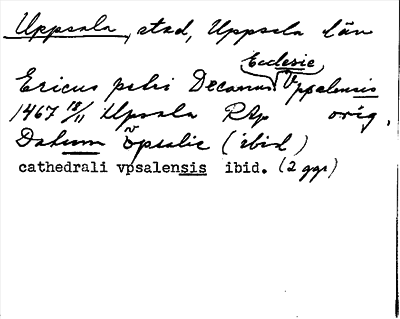 Uppsala, stad, Uppsala län
Ecclesie
Ericus petri Decanus Vpsalensis
1467 18/11 Upsala RAp orig.
Datum Vpsalie (ibid)
cathedrali vpsalensis ibid. (2 ggr)